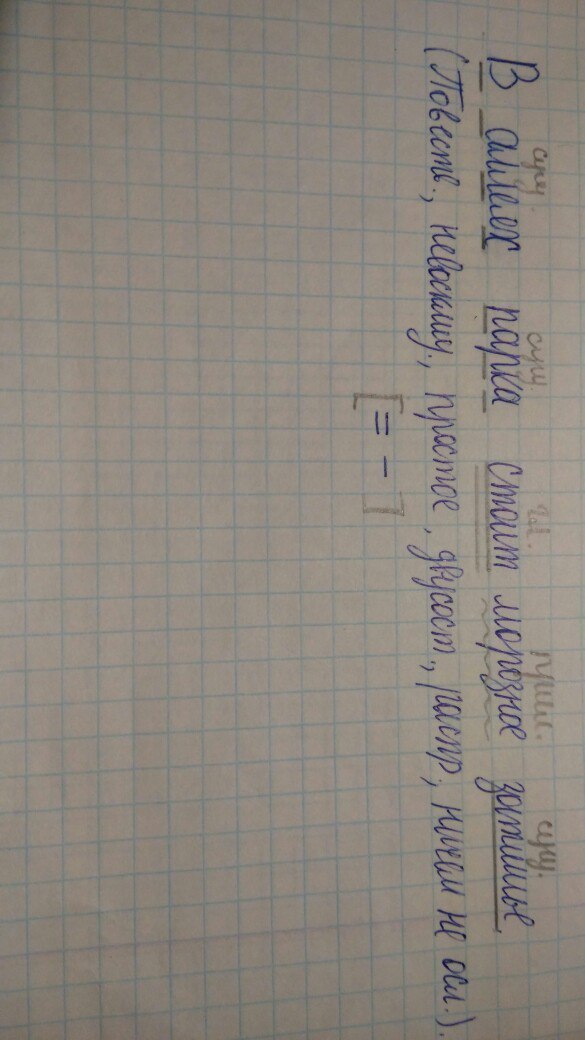 сущ. сущ. гл. прил. сущ.
В аллеях парка стоит морозное затишье
(Повеств., невосклиц., простое, двусост., распр., ничем не осл.).
[= -]